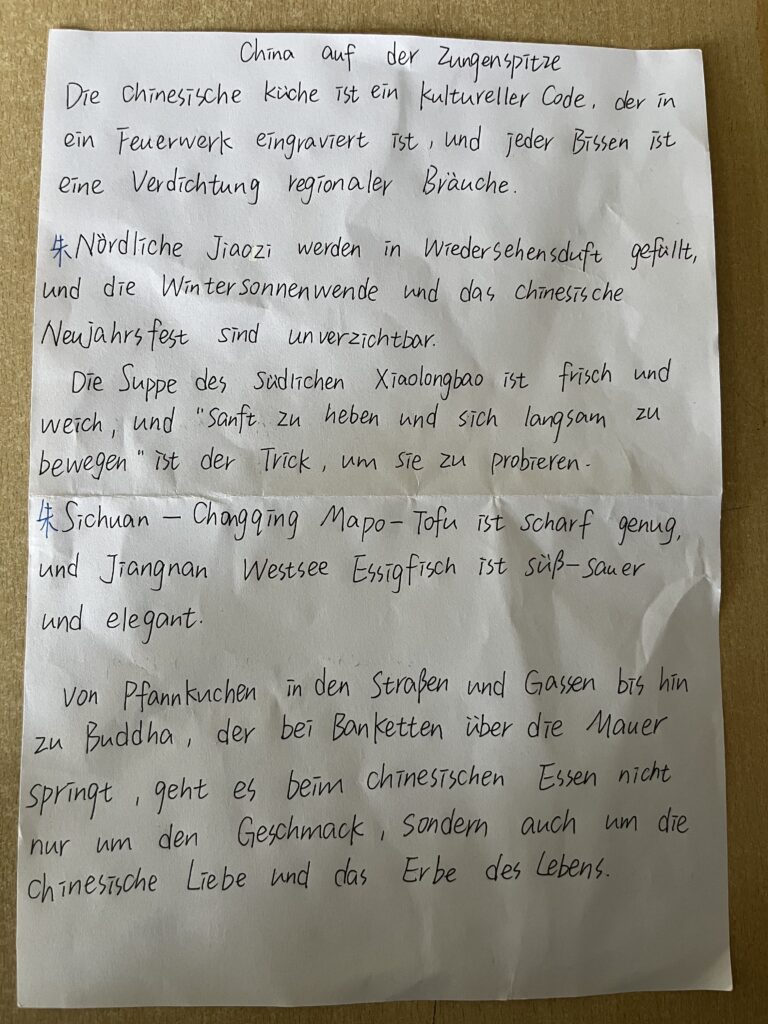 China auf der Zungenspitze
Die chinesische küche ist ein kultureller Code, der in
ein Feuerwerk eingraviert ist, und jeder Bissen ist
eine Verdichtung regionaler Bräuche.
朱 Nördliche Jiaozi werden in Wiedersehensduft gefüllt,
und die Wintersonnenwende und das chinesische
Neujahrsfest sind unverzichtbar.
Die Suppe des südlichen Xiaolongbao ist frisch und
weich, und "Sanft zu heben und sich langsam zu
bewegen" ist der Trick, um sie zu probieren.
朱 Sichuan - Chongqing Mapo-Tofu ist scharf genug,
und Jiangnan Westsee Essigfisch ist süß-sauer
und elegant.
Von Pfannkuchen in den Straßen und Gassen bis hin
zu Buddha, der bei Banketten über die Mauer
springt, geht es beim chinesischen Essen nicht
nur um den Geschmack, sondern auch um die
chinesische Liebe und das Erbe des Lebens.